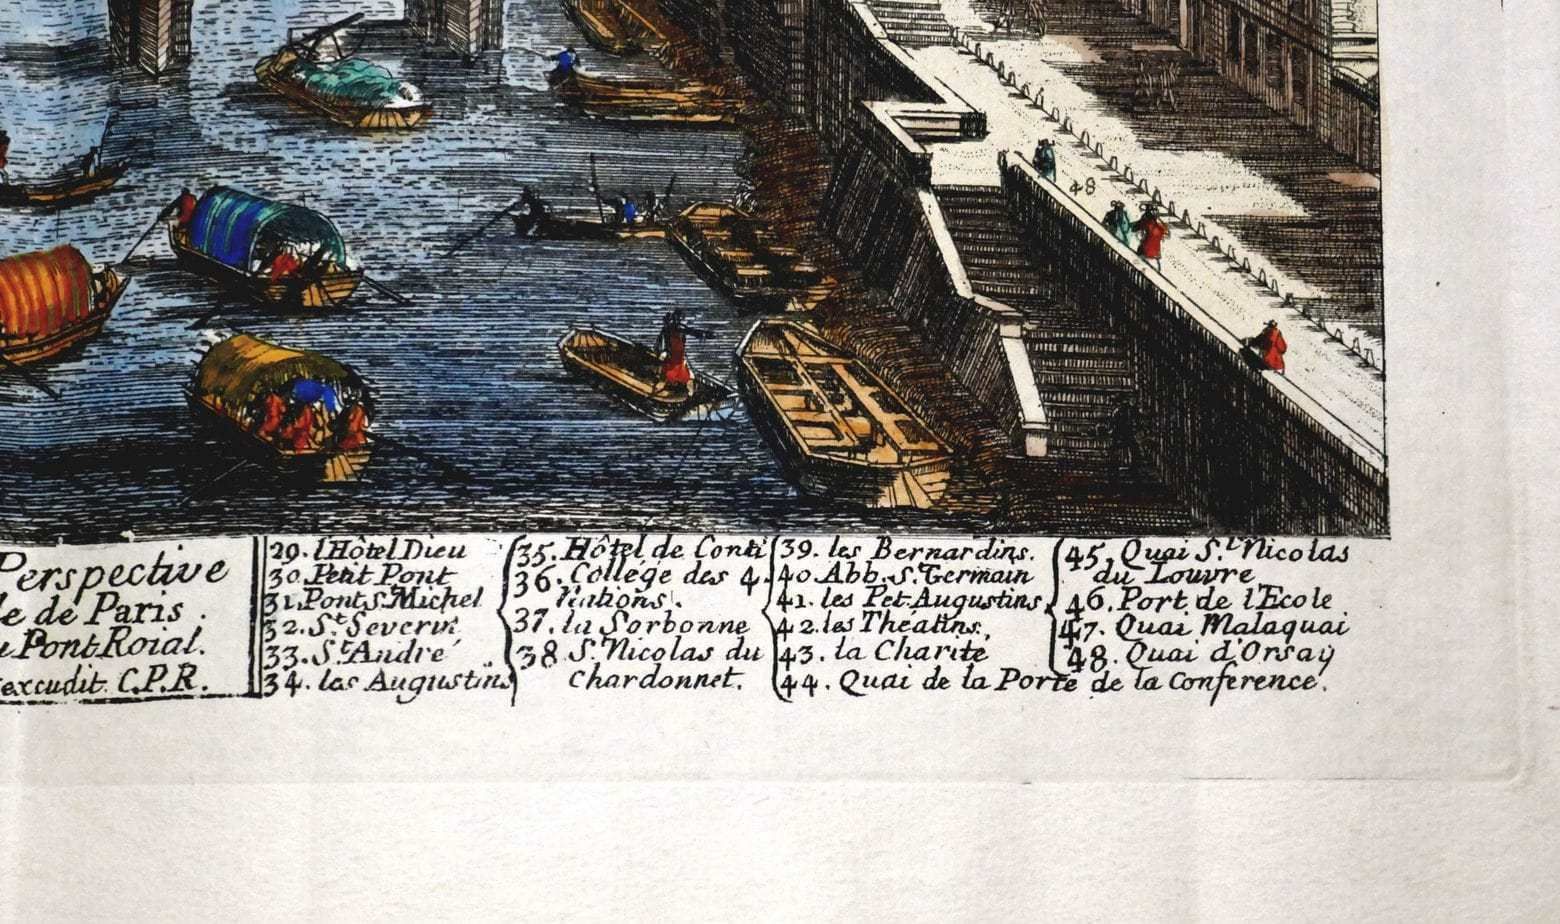 48
Perspective
le de Paris.
u Pont Roial.
excudit. C.P.R.
29. l'Hôtel Dieu
30. Petit Pont
31. Pont S. Michel
32. St. Severin
33. St. André
34. les Augustins
35. Hôtel de Conti
36. College des 4.
Nations.
37. la Sorbonne
38 S. Nicolas du
Chardonnet.
39. les Bernardins.
40. Abb. S. Germain
41. les Pet. Augustins
42. les Théatins.
43. la Charité
44. Quai de la Porte de la Conference.
45. Quai St. Nicolas
du Louvre
46. Port de l'Ecole
47. Quai Malaquai
48. Quai d'Orsay